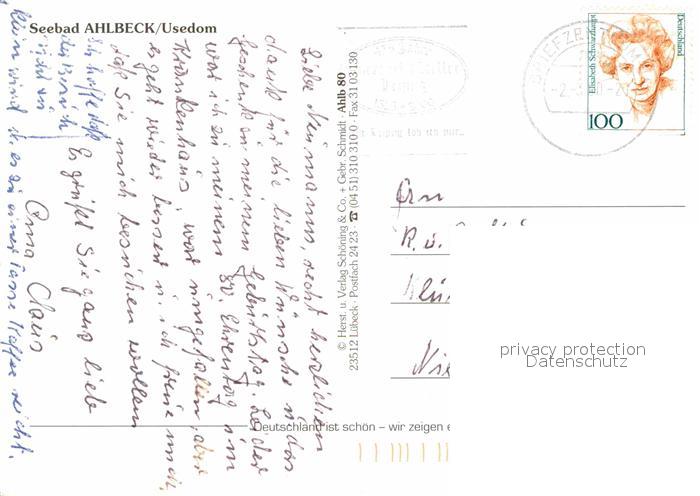 Seebad AHLBECK/Usedom
Liebe Neumanns, recht herzlichen
dank für die lieben Wünsche u. das
Geschenk zu meinem Geburtstag. Leider
war ich zu meinem 80. Ehrentag im
Krankenhaus, war hingefallen, aber
es geht wieder besser u. ich freue mich,
daß Sie mich besuchen wollen
Es grüßt Sie ganz lieb
Anna Claus
Ich hoffe daß
der Besuch
nicht
klein wird
einer Tasse Kaffee reicht.
© Herst. u. Verlag Schöning & Co. + Gebr. Schmidt · Ahlb 80
23512 Lübeck · Postfach 24 23 · ☎ (04 51) 310 310 0 · Fax 31 03 130
Deutschland ist schön – wir zeigen e
BRIEFZE
Elisabeth Schwarzhaupt
Deutschland
100
R. u.
privacy protection
Datenschutz